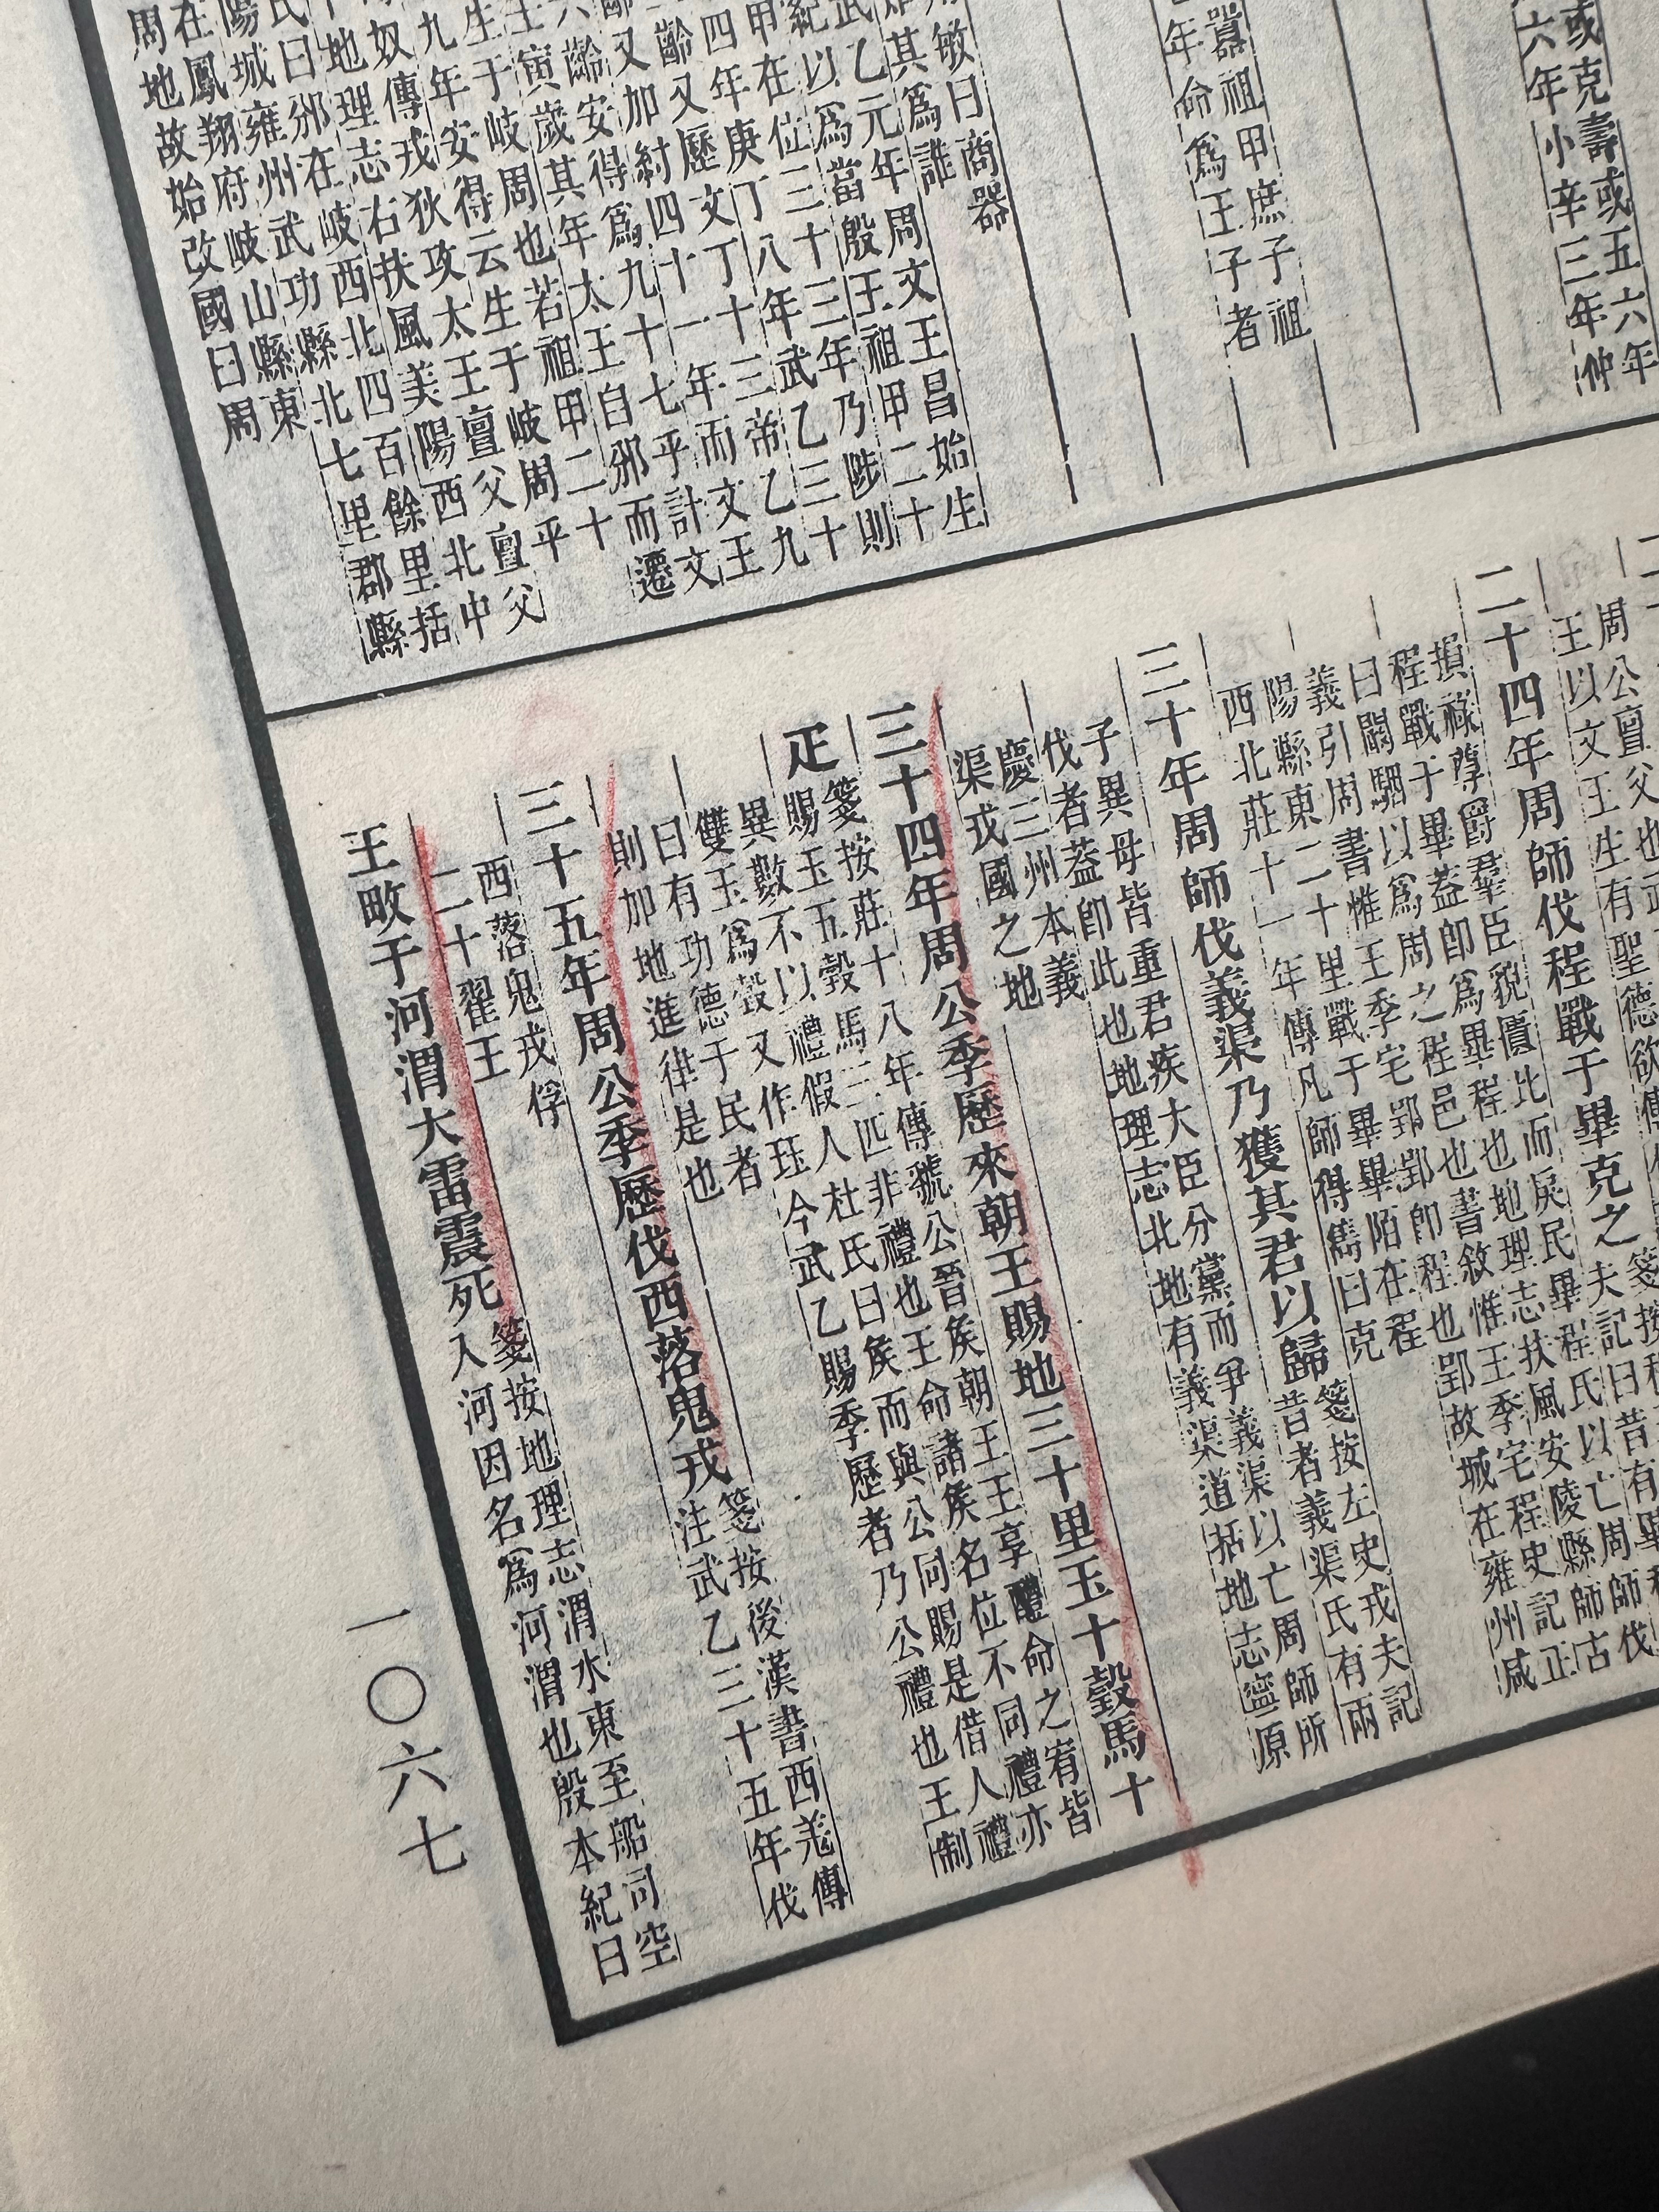 或克壽或五六年
六年小辛三年仲
囂祖甲庶子祖
年命爲王子者
敏曰商器
其爲誰
乙元年周文王昌始生
以爲當殷王祖甲二十
在位三十三年乃陟則
年庚丁八年武乙三十
齡又歷文丁十三帝乙九
又加紂四十一年而文王
齡安得爲九十七乎計文
寅歲其年太王自邠而遷
生于岐周也若祖甲二十
九年安得云生于岐周平
奴傳戎狄攻太王亶父亶父
地理志右扶風美陽西北中
氏曰邠在岐西北四百餘里括
陽城雍州武功縣北七里郡縣
在鳳翔府岐山縣東
周地故始改國曰周
周公亶父也
王以文王生有聖德欲傳
二十四年周師伐程戰于畢克之箋按
夫記曰昔有畢程
損祿尊爵羣臣貌匱比而戾民畢程氏以亡周師伐
程戰于畢蓋卽爲畢程也地理志扶風安陵縣師古
曰闞駰以爲周之程邑也書敘惟王季宅程史記正
義引周書惟王季宅郢郢卽程也郢故城在雍州咸
陽縣東二十里戰于畢畢陌在程
西北莊十一年傳凡師得雋曰克
三十年周師伐義渠乃獲其君以歸箋按左史戎夫記
昔者義渠氏有兩
子異母皆重君疾大臣分黨而爭義渠以亡周師所
伐者蓋卽此也地理志北地有義渠道括地志寧原
慶三州本義
渠戎國之地
三十四年周公季歷來朝王賜地三十里玉十瑴馬十
疋箋按莊十八年傳虢公晉侯朝王王享醴命之宥皆
賜玉五瑴馬三匹非禮也王命諸侯名位不同禮亦
異數不以禮假人杜氏曰侯而與公同賜是借人禮
雙玉爲瑴又作珏今武乙賜季歷者乃公禮也王制
曰有功德于民者
則加地進律是也
三十五年周公季歷伐西落鬼戎箋按後漢書西羌傳
注武乙三十五年伐
西落鬼戎俘
二十翟王
王畋于河渭大雷震死箋按地理志渭水東至船司空
入河因名爲河渭也殷本紀曰
一〇六七